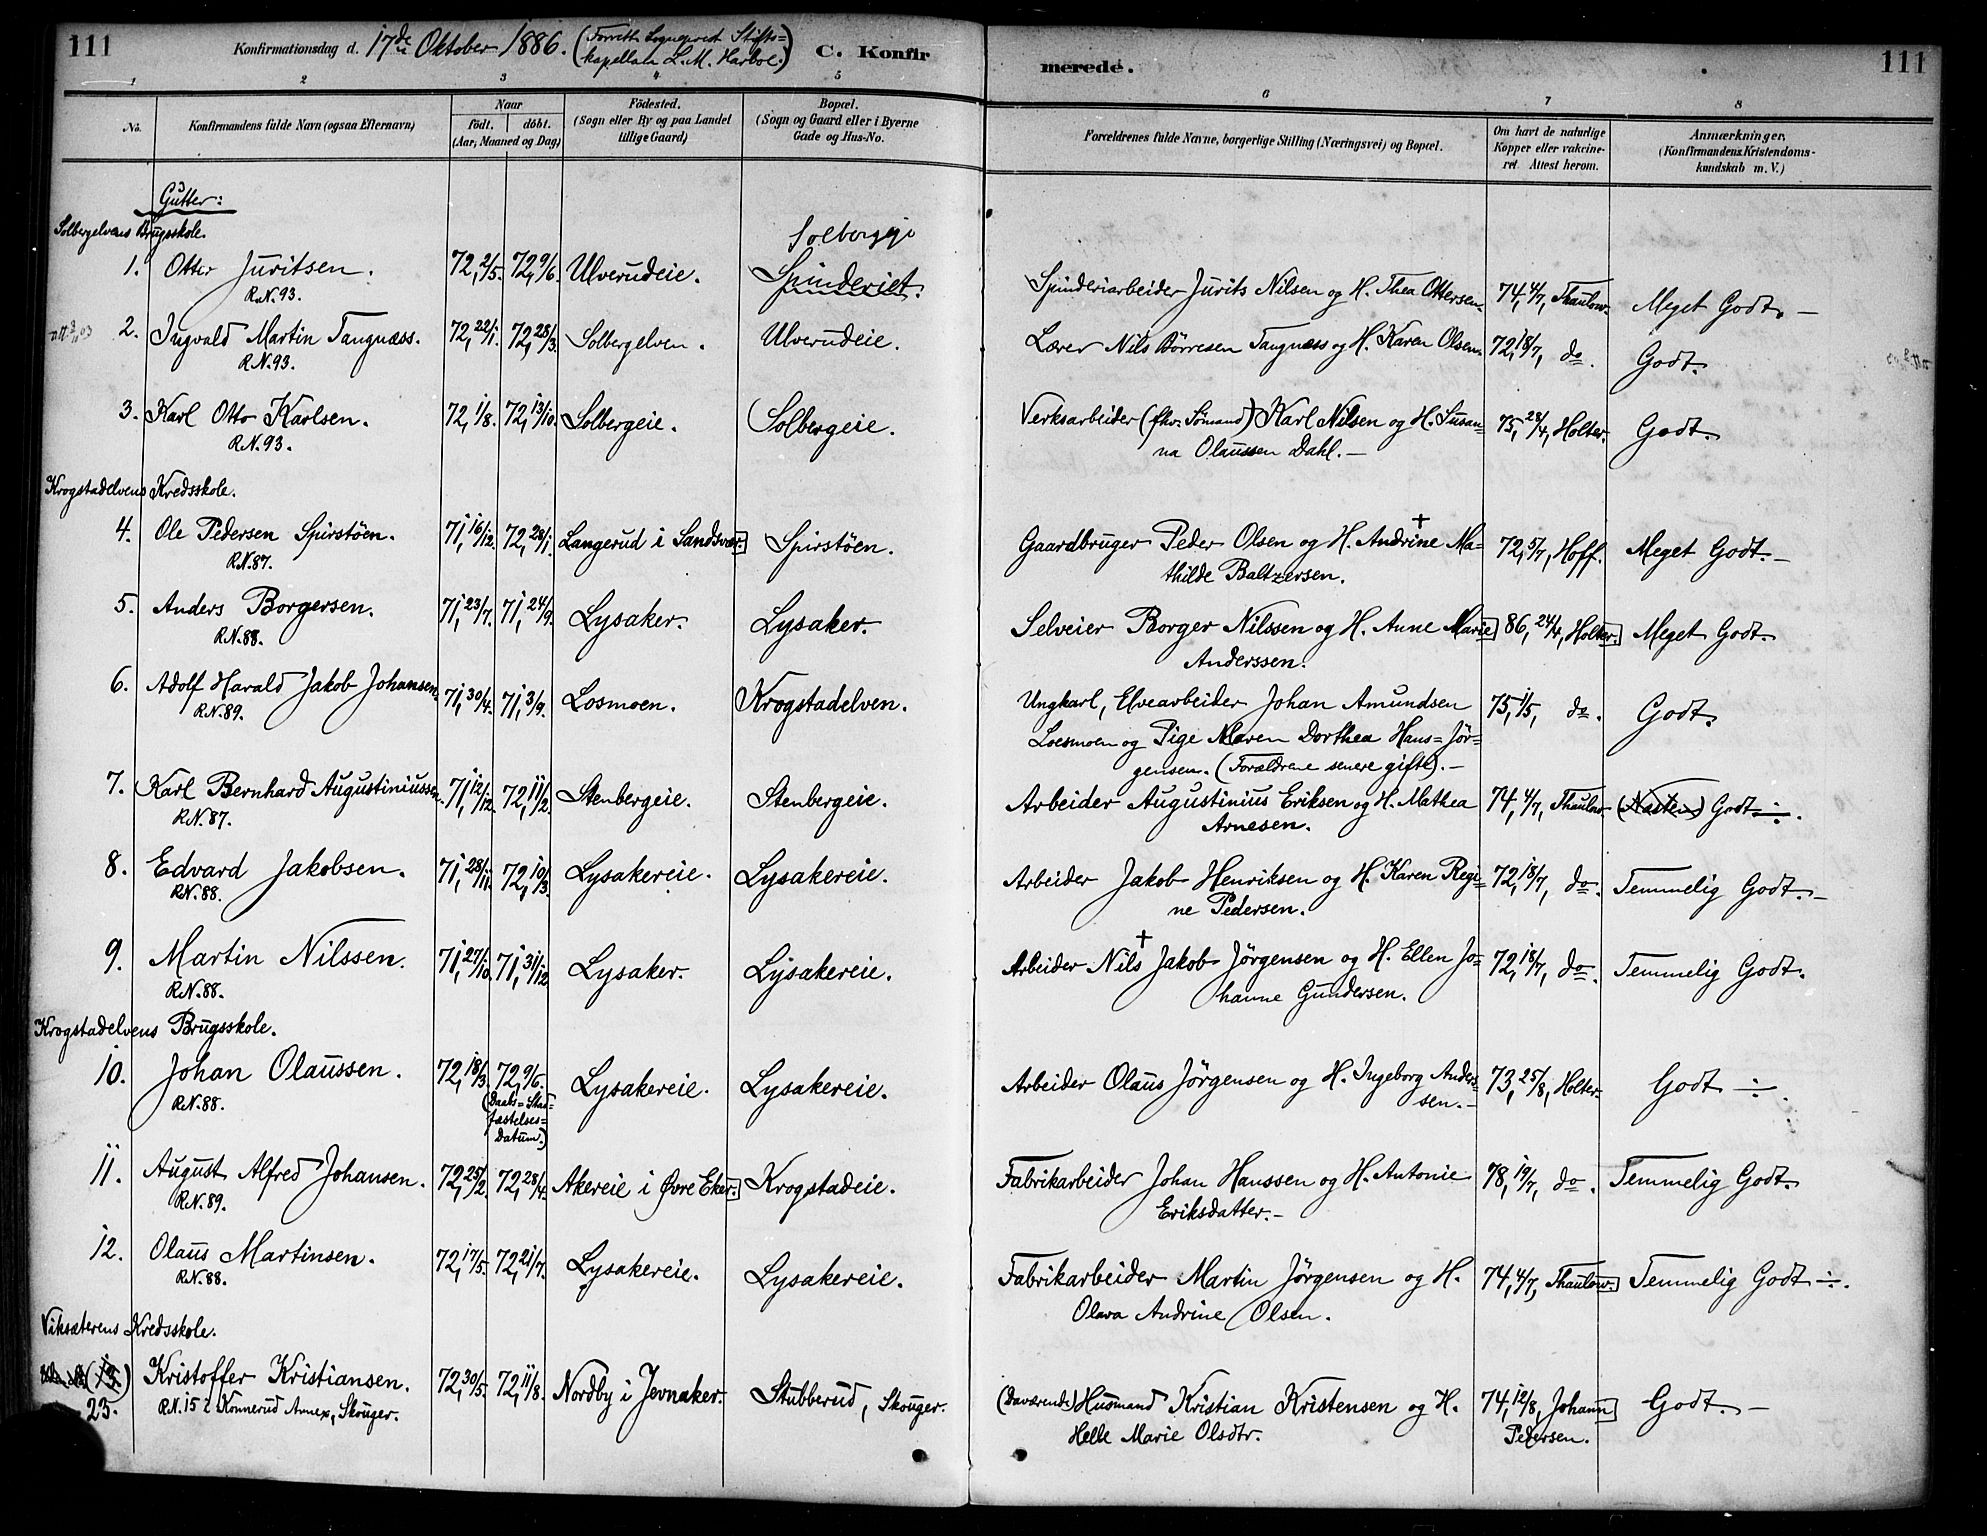 111
Konfirmationsdag d. 17de Oktober 1886. (Forrett. Sogneprest Stifts=
kapellan L. M. Harboe.)
C. Konfirmerede.
111
1 2 3 4 5 6 7 8
No. Konfirmandens fulde Navn (ogsaa Efternavn) Naar født. døbt. (Aar, Maaned og Dag) Födested. (Sogn eller By og paa Landet tillige Gaard) Bopæl. (Sogn og Gaard eller i Byerne Gade og Hus-No. Forældrenes fulde Navne, borgerlige Stilling (Næringsvei) og Bopæl. Om havt de naturlige Kopper eller vakcineret. Attest herom. Anmærkninger. (Konfirmandens Kristendomskundskab m. V.)
Gutter:
Solbergelvens Brugsskole.
Solbergeje
1. Otter Juritsen. 72, 2/5. 72, 9/6. Ulverudeie. Spinderiet. Spinderiarbeider Jurits Nilsen og H. Thea Ottersen. 74, 4/7, Thaulow. Meget Godt. –
R.N. 93.
2. Ingvald Martin Tangnæss. 72, 22/1. 72, 28/3. Solbergelven. Ulverudeie. Lærer Nils Børresen Tangnæss og H. Karen Olsen. 72, 18/7, do. Godt.
R.N. 93.
3. Karl Otto Karlsen. 72, 1/8. 72, 13/10. Solbergeie. Solbergeie. Verksarbeider (fhv. Sømand) Karl Nilsen og H. Susan= 75, 28/4, Holter. Godt.
R.N. 93. na Olaussen Dahl. –
Krogstadelvens Kredsskole.
4. Ole Pedersen Spirstöen. 71, 16/12. 72, 28/1. Langerud i Sandsvær. Spirstöen. Gaardbruger Peder Olsen og H. Andrine † Ma= 72, 5/7, Hoff. Meget Godt. –
R.N. 87. thilde Baltzersen.
5. Anders Borgersen. 71, 23/7. 71, 24/9. Lysaker. Lysaker. Selveier Borger Nilssen og H. Anne Marie 86, 24/4, Holter. Meget Godt.
R.N. 88. Anderssen.
6. Adolf Harald Jakob Johansen. 71, 30/4. 71, 3/9. Losmoen. Krogstadelven. Ungkarl, Elvearbeider Johan Amundsen 75, 1/5, do. Godt.
R.N. 89. Loesmoen og Pige Maren Dorthea Hans= Jör=
gensen. (Forældrene senere gifte). –
7. Karl Bernhard Augustiniussen. 71, 12/12. 72, 11/2. Stenbergeie. Stenbergeie. Arbeider Augustinius Eriksen og H. Mathea 74, 4/7, Thaulow. (Næsten) Godt. ÷.
R.N. 87. Arnesen.
8. Edvard Jakobsen. 71, 28/11. 72, 10/3. Lysakereie. Lysakereie. Arbeider Jakob Henriksen og H. Karen Regi= 72, 18/7, do. Temmelig Godt. –
R.N. 88. ne Pedersen.
9. Martin Nilssen. 71, 27/10. 71, 31/12. Lysaker. Lysakereie. Arbeider Nils † Jakob Jörgensen og H. Ellen Jo= 72, 18/7, do. Temmelig Godt.
R.N. 88. hanne Gundersen.
Krogstadelvens Brugsskole.
10. Johan Olaussen. 72, 18/3. 72, 9/6. Lysakereie. Lysakereie. Arbeider Olaus Jörgensen og H. Ingeborg Anders= 73, 25/8, Holter. Godt ÷.
R.N. 88. (Daabs=Stad=
fæstelses=
Datum.) sen. –
11. August Alfred Johansen. 72, 25/2. 72, 28/4. Akereie i Øvre Eker. Krogstadeie. Fabrikarbeider Johan Hanssen og H. Antonie 78, 19/7, do. Temmelig Godt.
R.N. 89. Eriksdatter. –
12. Olaus Martinsen. 72, 17/5. 72, 21/7. Lysakereie. Lysakereie. Fabrikarbeider Martin Jörgensen og H. 74, 4/7, Thaulow. Temmelig Godt ÷.
R.N. 88. Olava Andrine Olsen.
Viksæterens Kredsskole.
(13) Kristoffer Kristiansen. 72, 30/5. 72, 11/8. Nordby i Jevnaker. Stubberud, Skouger. (Daværende) Husmand Kristian Kristensen og H. 74, 12/8, Johann Godt. –
23. R.N. 15 i Konnerud Annex, Skouger. Helle Marie Olsdtr. Pedersen.